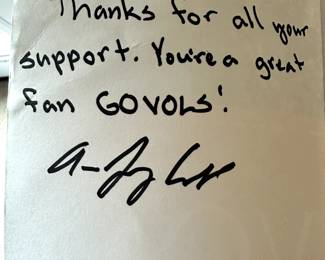 Thanks for all your
support. You're a great
fan GO VOLS!